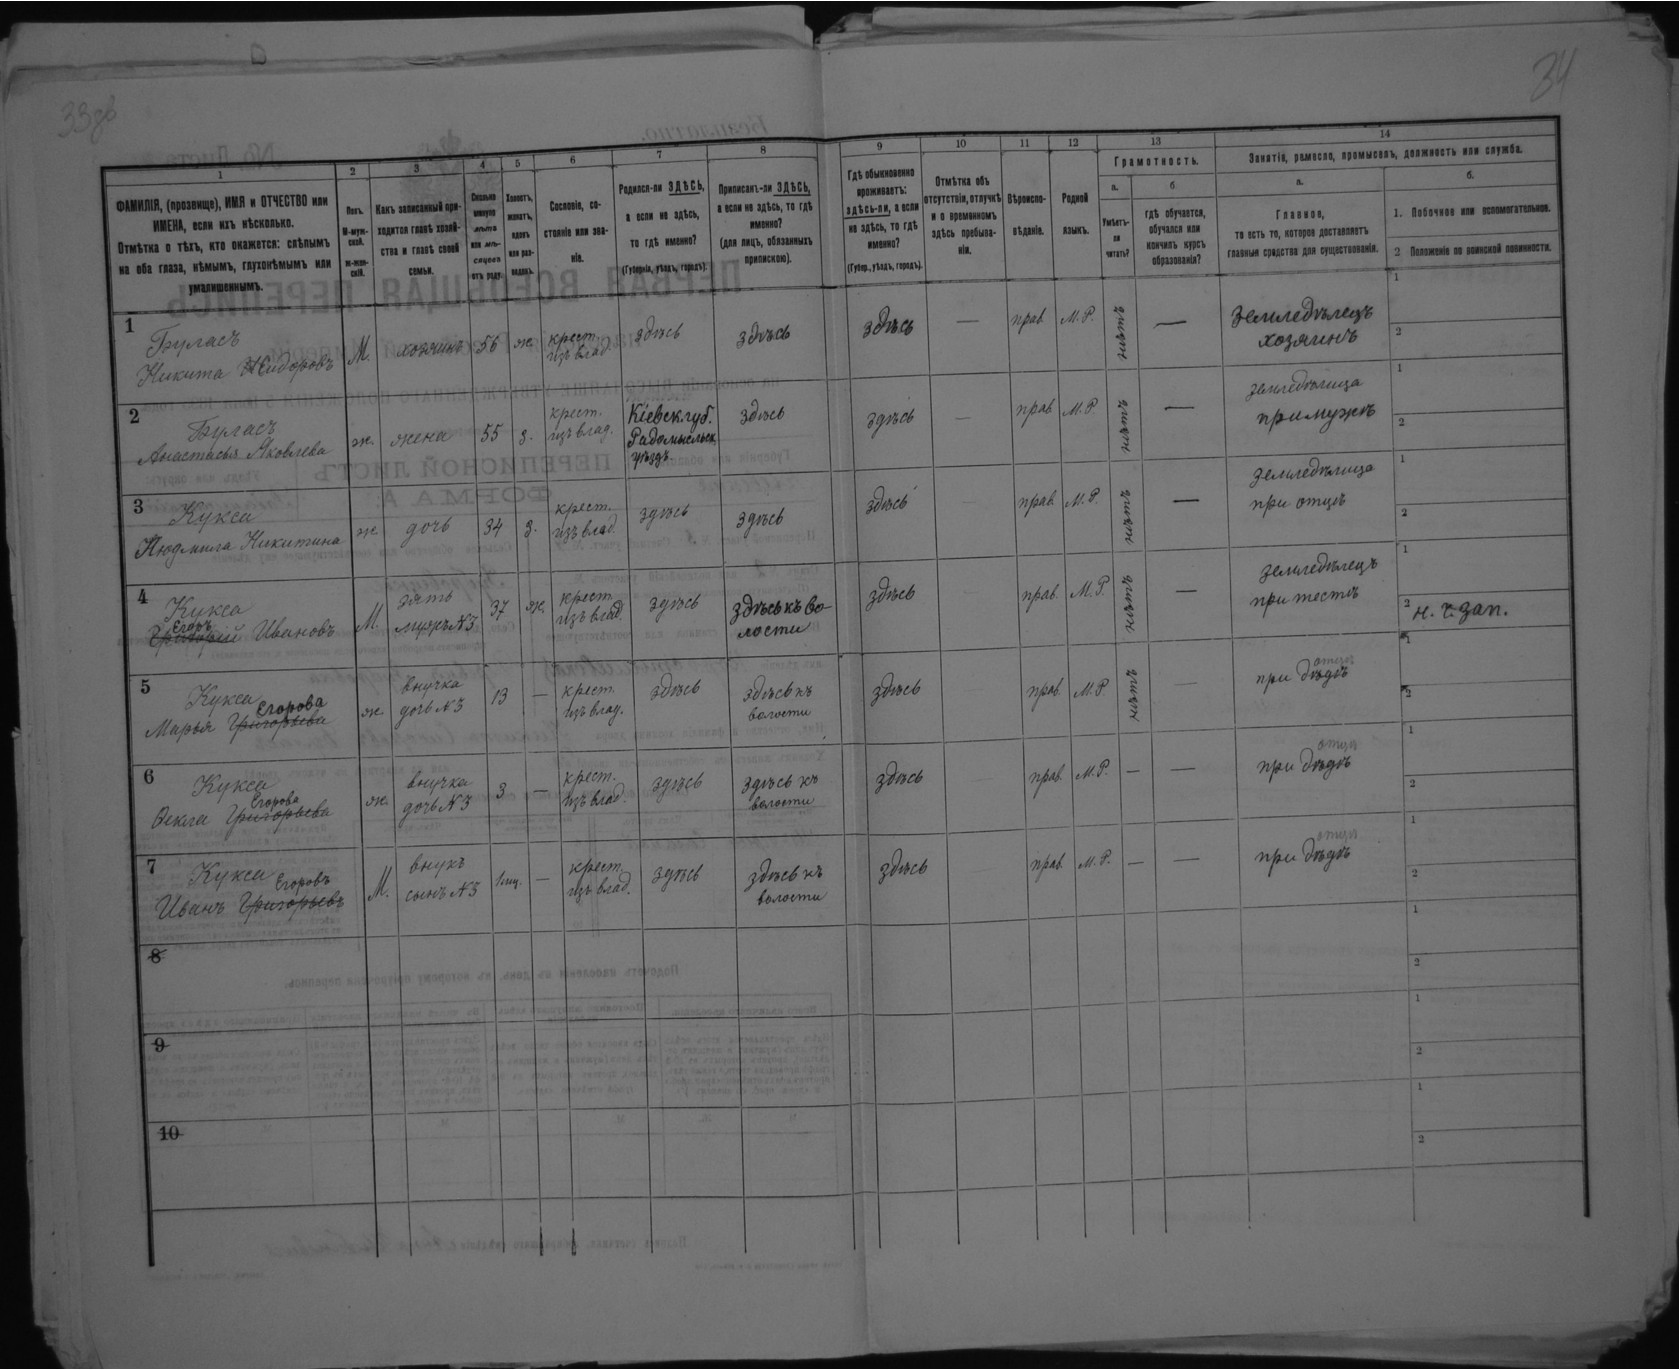 33об
34
1 2 3 4 5 6 7 8 9 10 11 12 13 14
ФАМИЛІЯ, (прозвище), ИМЯ и ОТЧЕСТВО или
ИМЕНА, если ихъ нѣсколько.
Отмѣтка о тѣхъ, кто окажется: слѣпымъ
на оба глаза, нѣмымъ, глухонѣмымъ или
умалишеннымъ.
Полъ.
М-муж-
ской.
ж-жен-
скій.
Какъ записанный при-
ходится главѣ хозяй-
ства и главѣ своей
семьи.
Сколько
минуло
лѣтъ
или мѣ-
сяцевъ
отъ роду.
Холостъ,
женатъ,
вдовъ
или раз-
веденъ.
Сословіе, со-
стояніе или зва-
ніе.
Родился-ли ЗДѢСЬ,
а если не здѣсь,
то гдѣ именно?
(Губернія, уѣздъ, городъ).
Приписанъ-ли ЗДѢСЬ,
а если не здѣсь, то гдѣ
именно?
(для лицъ, обязанныхъ
припискою).
Гдѣ обыкновенно
проживаетъ:
здѣсь-ли, а если
не здѣсь, то гдѣ
именно?
(Губер., уѣздъ, городъ).
Отмѣтка объ
отсутствіи, отлучкѣ
и о временномъ
здѣсь пребыва-
ніи.
Вѣроиспо-
вѣданіе.
Родной
языкъ.
Грамотность.
а.
Умѣетъ-
ли
читать?
б
гдѣ обучается,
обучался или
кончилъ курсъ
образованія?
Занятія, ремесло, промыселъ, должность или служба.
а.
Главное,
то есть то, которое доставляетъ
главныя средства для существованія.
б.
1. Побочное или вспомогательное.
2 Положеніе по воинской повинности.
1 Буласъ
Никита Сидоровъ
М. хозяинъ 56 ж. крест.
изъ влад. здѣсь здѣсь здѣсь — прав. М.Р. нѣтъ — Земледѣлецъ
хозяинъ
1
2
2 Буласъ
Анастасья Яковлева
ж. жена 55 з. крест.
изъ влад. Кіевск. губ.
Радомысльск.
уѣздъ здѣсь здѣсь — прав М.Р. нѣтъ — земледѣлица
при мужѣ
1
2
3 Кукса
Людмила Никитина
ж. дочь 34 з. крест.
изъ влад. здѣсь здѣсь здѣсь — прав. М.Р. нѣтъ — земледѣлица
при отцѣ
1
2
4 Кукса
Егоръ
Григорій Ивановъ
М. зять
мужъ №3 37 ж. крест.
изъ влад. здѣсь здѣсь къ во-
лости здѣсь — прав. М.Р. нѣтъ — земледѣлецъ
при тестѣ
1
2 н. ч. зап.
5 Кукса
Егорова
Марья Григорьева
ж. внучка
дочь №3 13 — крест.
изъ влад. здѣсь здѣсь къ
волости здѣсь — прав. М.Р. нѣтъ — отцѣ
при дѣдѣ
1
2
6 Кукса
Егорова
Ѳекла Григорьева
ж. внучка
дочь №3 3 — крест.
изъ влад. здѣсь здѣсь къ
волости здѣсь — прав. М.Р. — — отцѣ
при дѣдѣ
1
2
7 Кукса
Егоровъ
Иванъ Григорьевъ
М. внукъ
сынъ №3 — крест.
изъ влад. здѣсь здѣсь къ
волости здѣсь прав. М.Р. — — отцѣ
при дѣдѣ
1
2
8
1
2
9
1
2
10
1
2